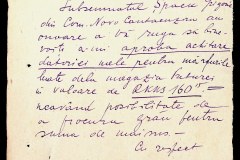 Subsemnatul Spacu Grigore
din Com. Novo Cantacuzen am
onoare a Vă ruga să bine-
voiți a-mi aproba achitarea
datoriei mele pentru mărfurile
luate dela magazia
în valoare de RKKS 160 =
neavând posibilitate de
a procura grâu pentru
suma de mai sus. -
Cu respect